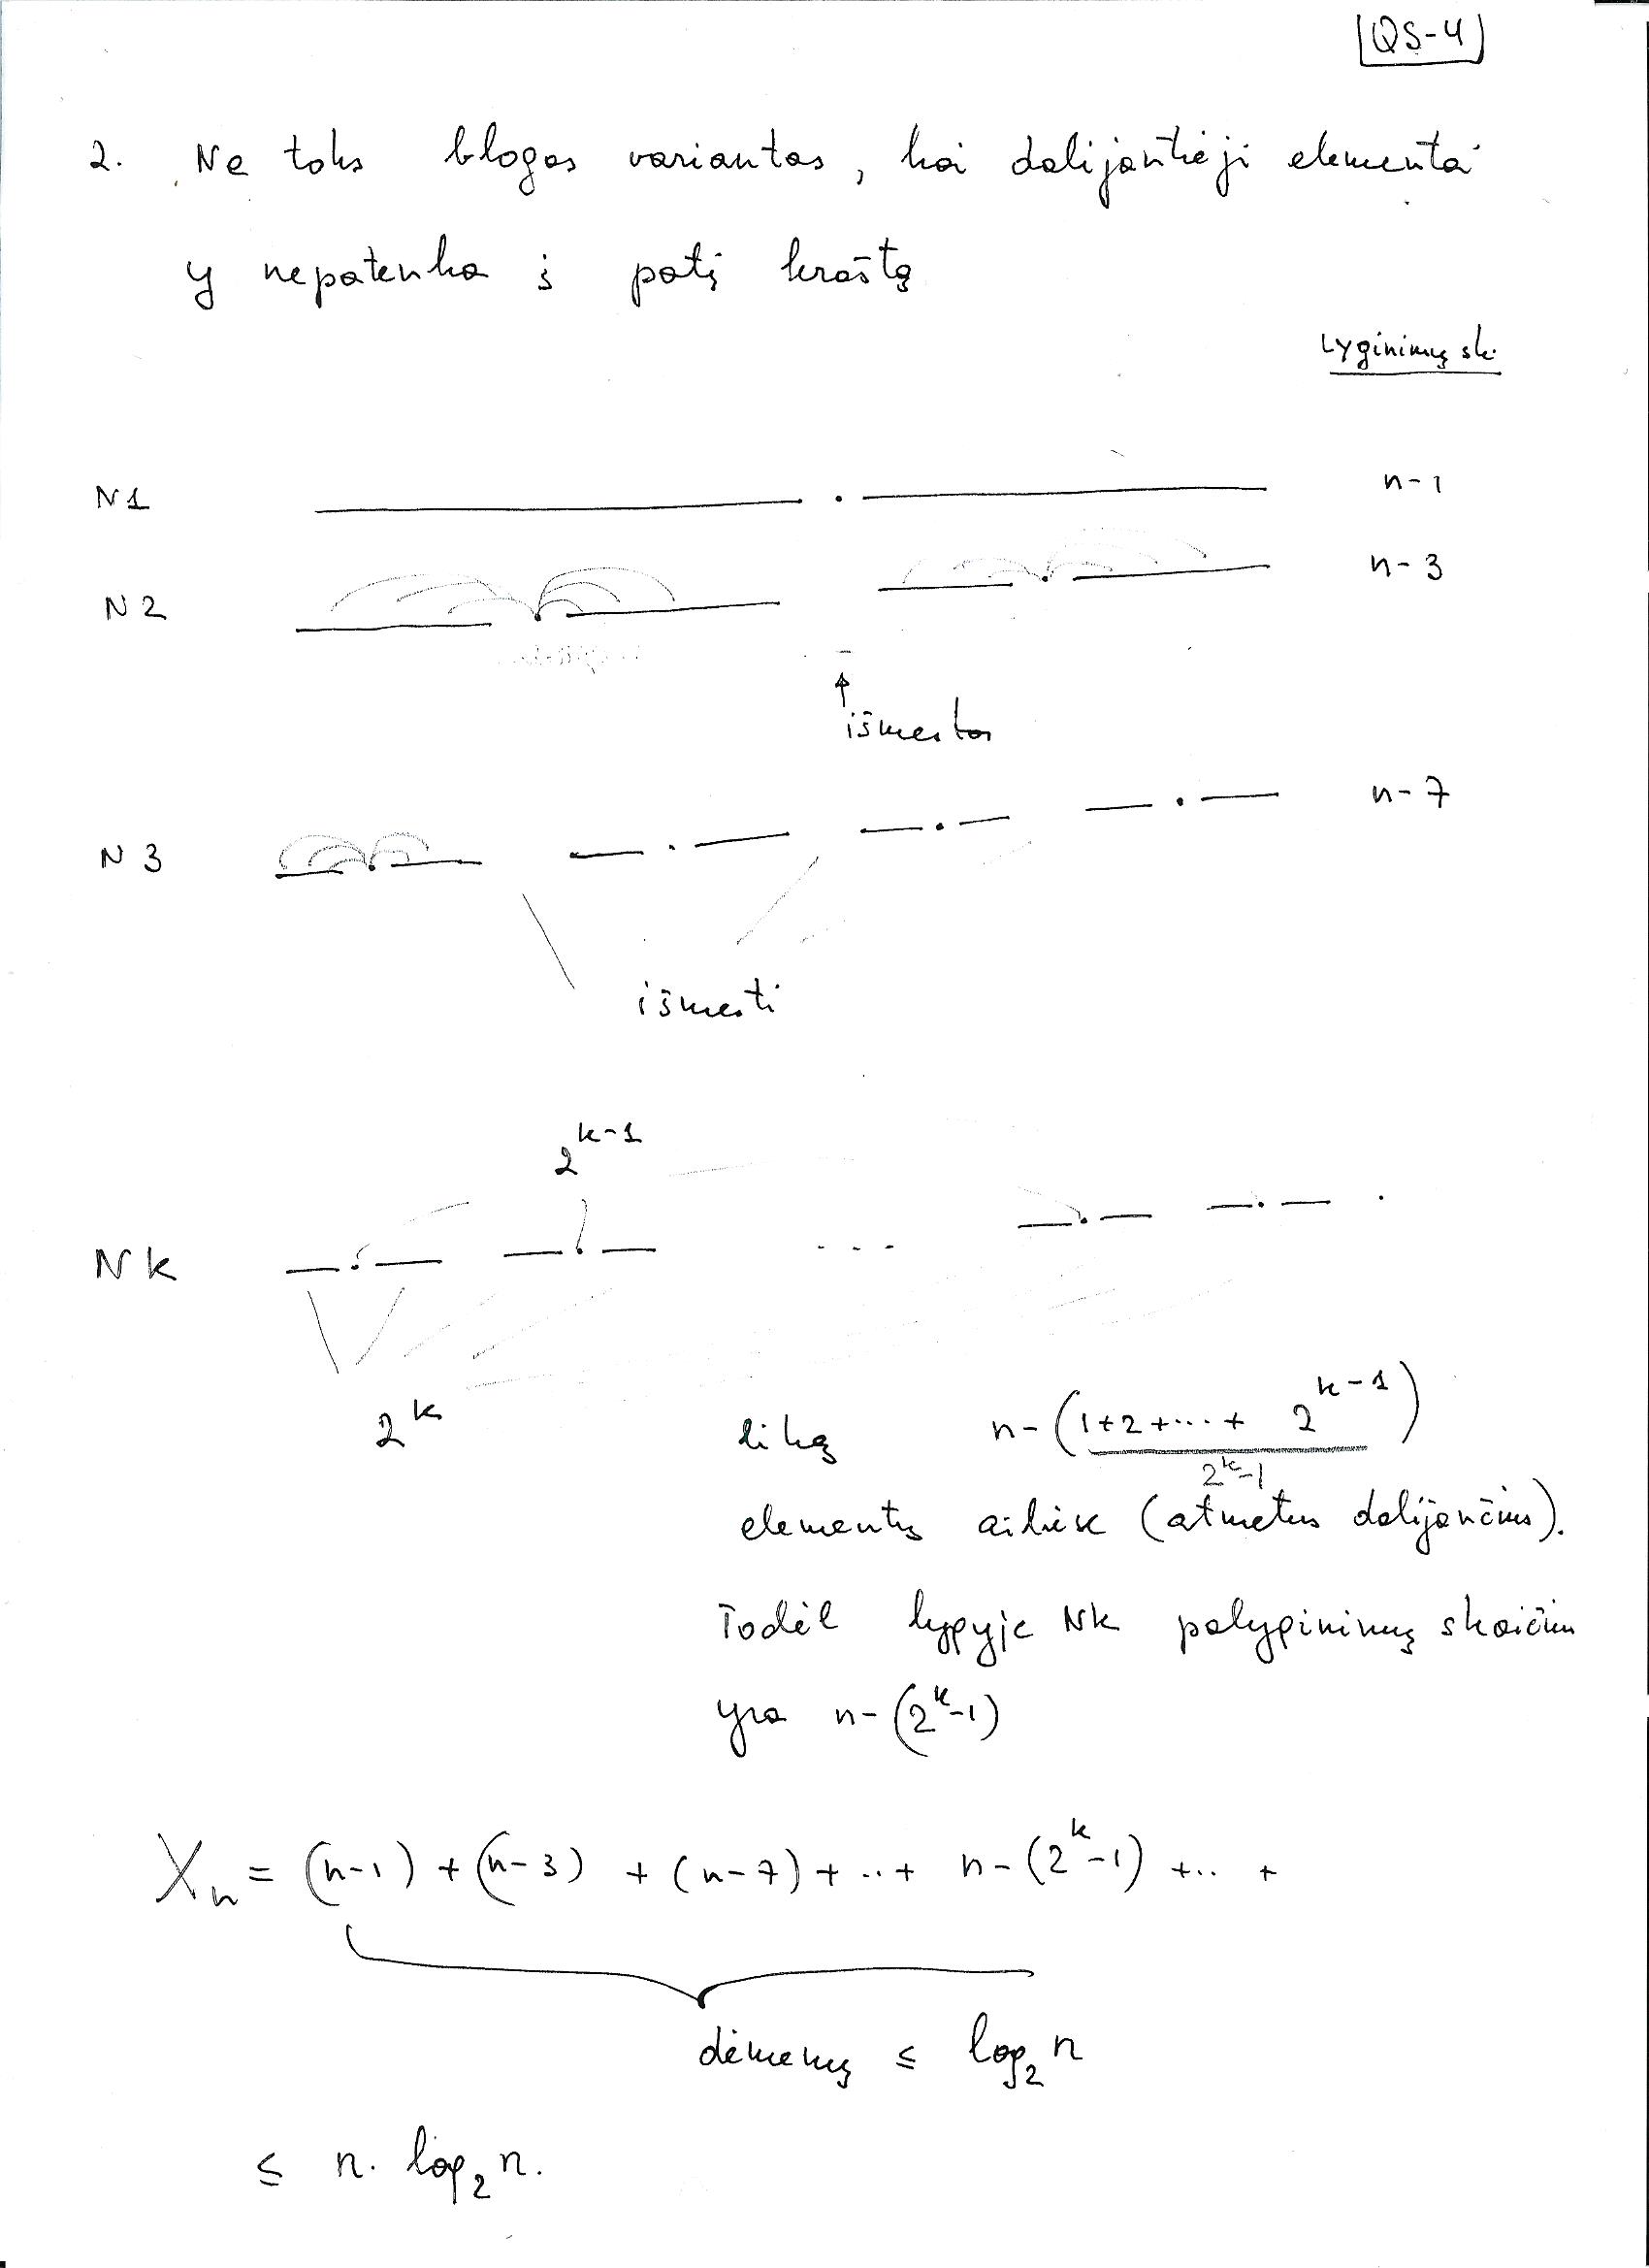 QS-4
2. Ne toks blogas variantas, kai dalijantieji elementai
y nepatenka į patį kraštą
Lyginimų sk.
N1 n-1
N2 n-3
išmestas
N3 n-7
išmesti
2^{k-1}
Nk
2^k
liks n-(1+2+...+ 2^{k-1})
2^k-1
elementų aibėse (atmetus dalijančius).
Todėl lygyje Nk palyginimų skaičius
yra n-(2^k-1)
X_n = (n-1) + (n-3) + (n-7) + ... + n-(2^k-1) + ... +
dėmenų ≤ log_2 n
≤ n. log_2 n.